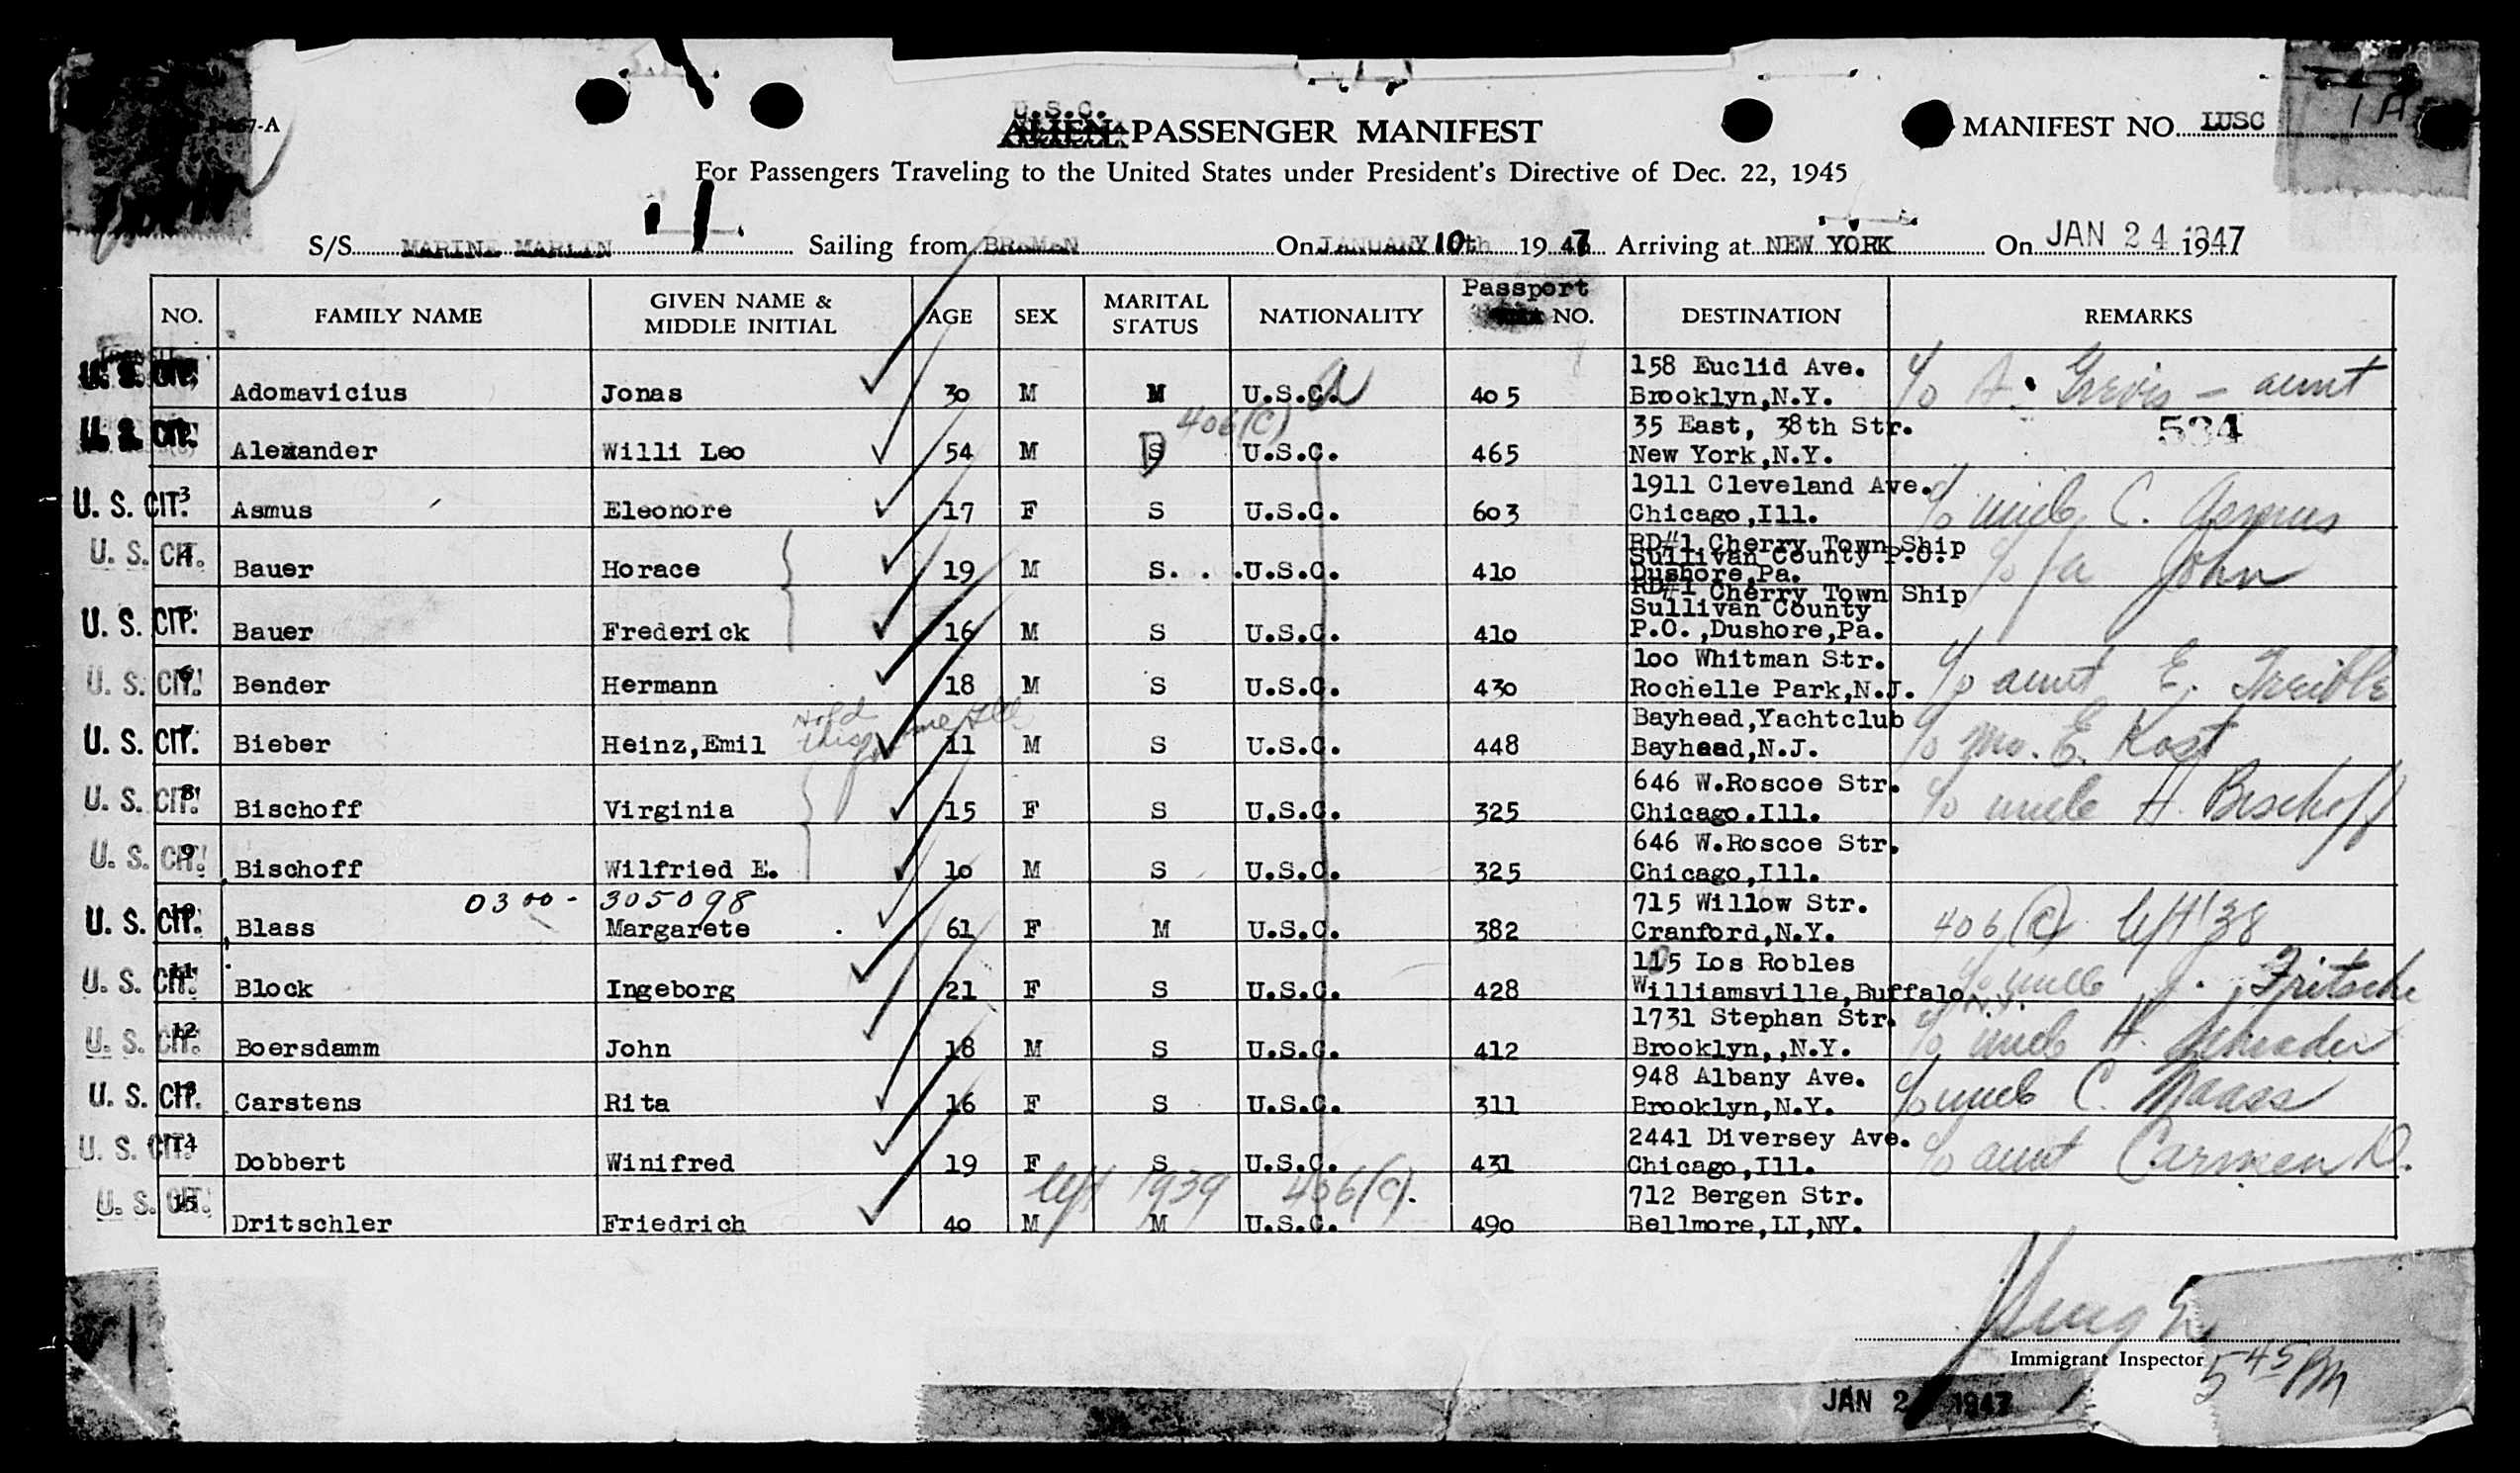 U.S.C.
ALIEN PASSENGER MANIFEST
MANIFEST NO. IUSC 1A
For Passengers Traveling to the United States under President's Directive of Dec. 22, 1945
S/S MARINE MARLIN Sailing from BREMEN On JANUARY 10th 1947 Arriving at NEW YORK On JAN 24 1947
NO. FAMILY NAME GIVEN NAME & MIDDLE INITIAL AGE SEX MARITAL STATUS NATIONALITY Passport NO. DESTINATION REMARKS
158 Euclid Ave.
U. S. CIT. Adomavicius Jonas 30 M M U.S.C. 405 Brooklyn,N.Y. c/o A. - aunt
406(c) 35 East, 38th Str. 584
U. S. CIT. Alexander Willi Leo 54 M S U.S.C. 465 New York,N.Y.
1911 Cleveland Ave.
U. S. CIT. 3 Asmus Eleonore 17 F S U.S.C. 603 Chicago,Ill. c/o uncle C. Asmus
RD#1 Cherry Town Ship
Sullivan County P.O.
U. S. CIT. 4 Bauer Horace 19 M S. . .U.S.C. 410 Dushore,Pa. c/o fa John
RD#1 Cherry Town Ship
Sullivan County
U. S. CIT. 5 Bauer Frederick 16 M S U.S.C. 410 P.O.,Dushore,Pa.
100 Whitman Str.
U. S. CIT. 6 Bender Hermann 18 M S U.S.C. 430 Rochelle Park,N.J. c/o aunt E. Treible
Hold this Bayhead,Yachtclub
U. S. CIT. 7 Bieber Heinz,Emil 11 M S U.S.C. 448 Bayhead,N.J. c/o mo. E. Kost
646 W.Roscoe Str.
U. S. CIT. 8 Bischoff Virginia 15 F S U.S.C. 325 Chicago.Ill. c/o uncle H. Bischoff
646 W.Roscoe Str.
U. S. CIT. 9 Bischoff Wilfried E. 10 M S U.S.C. 325 Chicago,Ill.
0300 - 305098 715 Willow Str.
U. S. CIT. 10 Blass Margarete 61 F M U.S.C. 382 Cranford,N.Y. 406(c) left '38
115 Los Robles
U. S. CIT. 11 Block Ingeborg 21 F S U.S.C. 428 Williamsville,Buffalo N.Y. c/o uncle J. Fritsche
1731 Stephan Str.
U. S. CIT. 12 Boersdamm John 18 M S U.S.C. 412 Brooklyn,,N.Y. c/o uncle H. Schrader
948 Albany Ave.
U. S. CIT. 13 Carstens Rita 16 F S U.S.C. 311 Brooklyn,N.Y. c/o uncle C. Maass
2441 Diversey Ave.
U. S. CIT. 14 Dobbert Winifred 19 F S U.S.C. 431 Chicago,Ill. c/o aunt Carmen D.
left 1939 406(c). 712 Bergen Str.
U. S. CIT. 15 Dritschler Friedrich 40 M M U.S.C. 490 Bellmore,LI,NY.
Immigrant Inspector
5 45 PM
JAN 2 1947